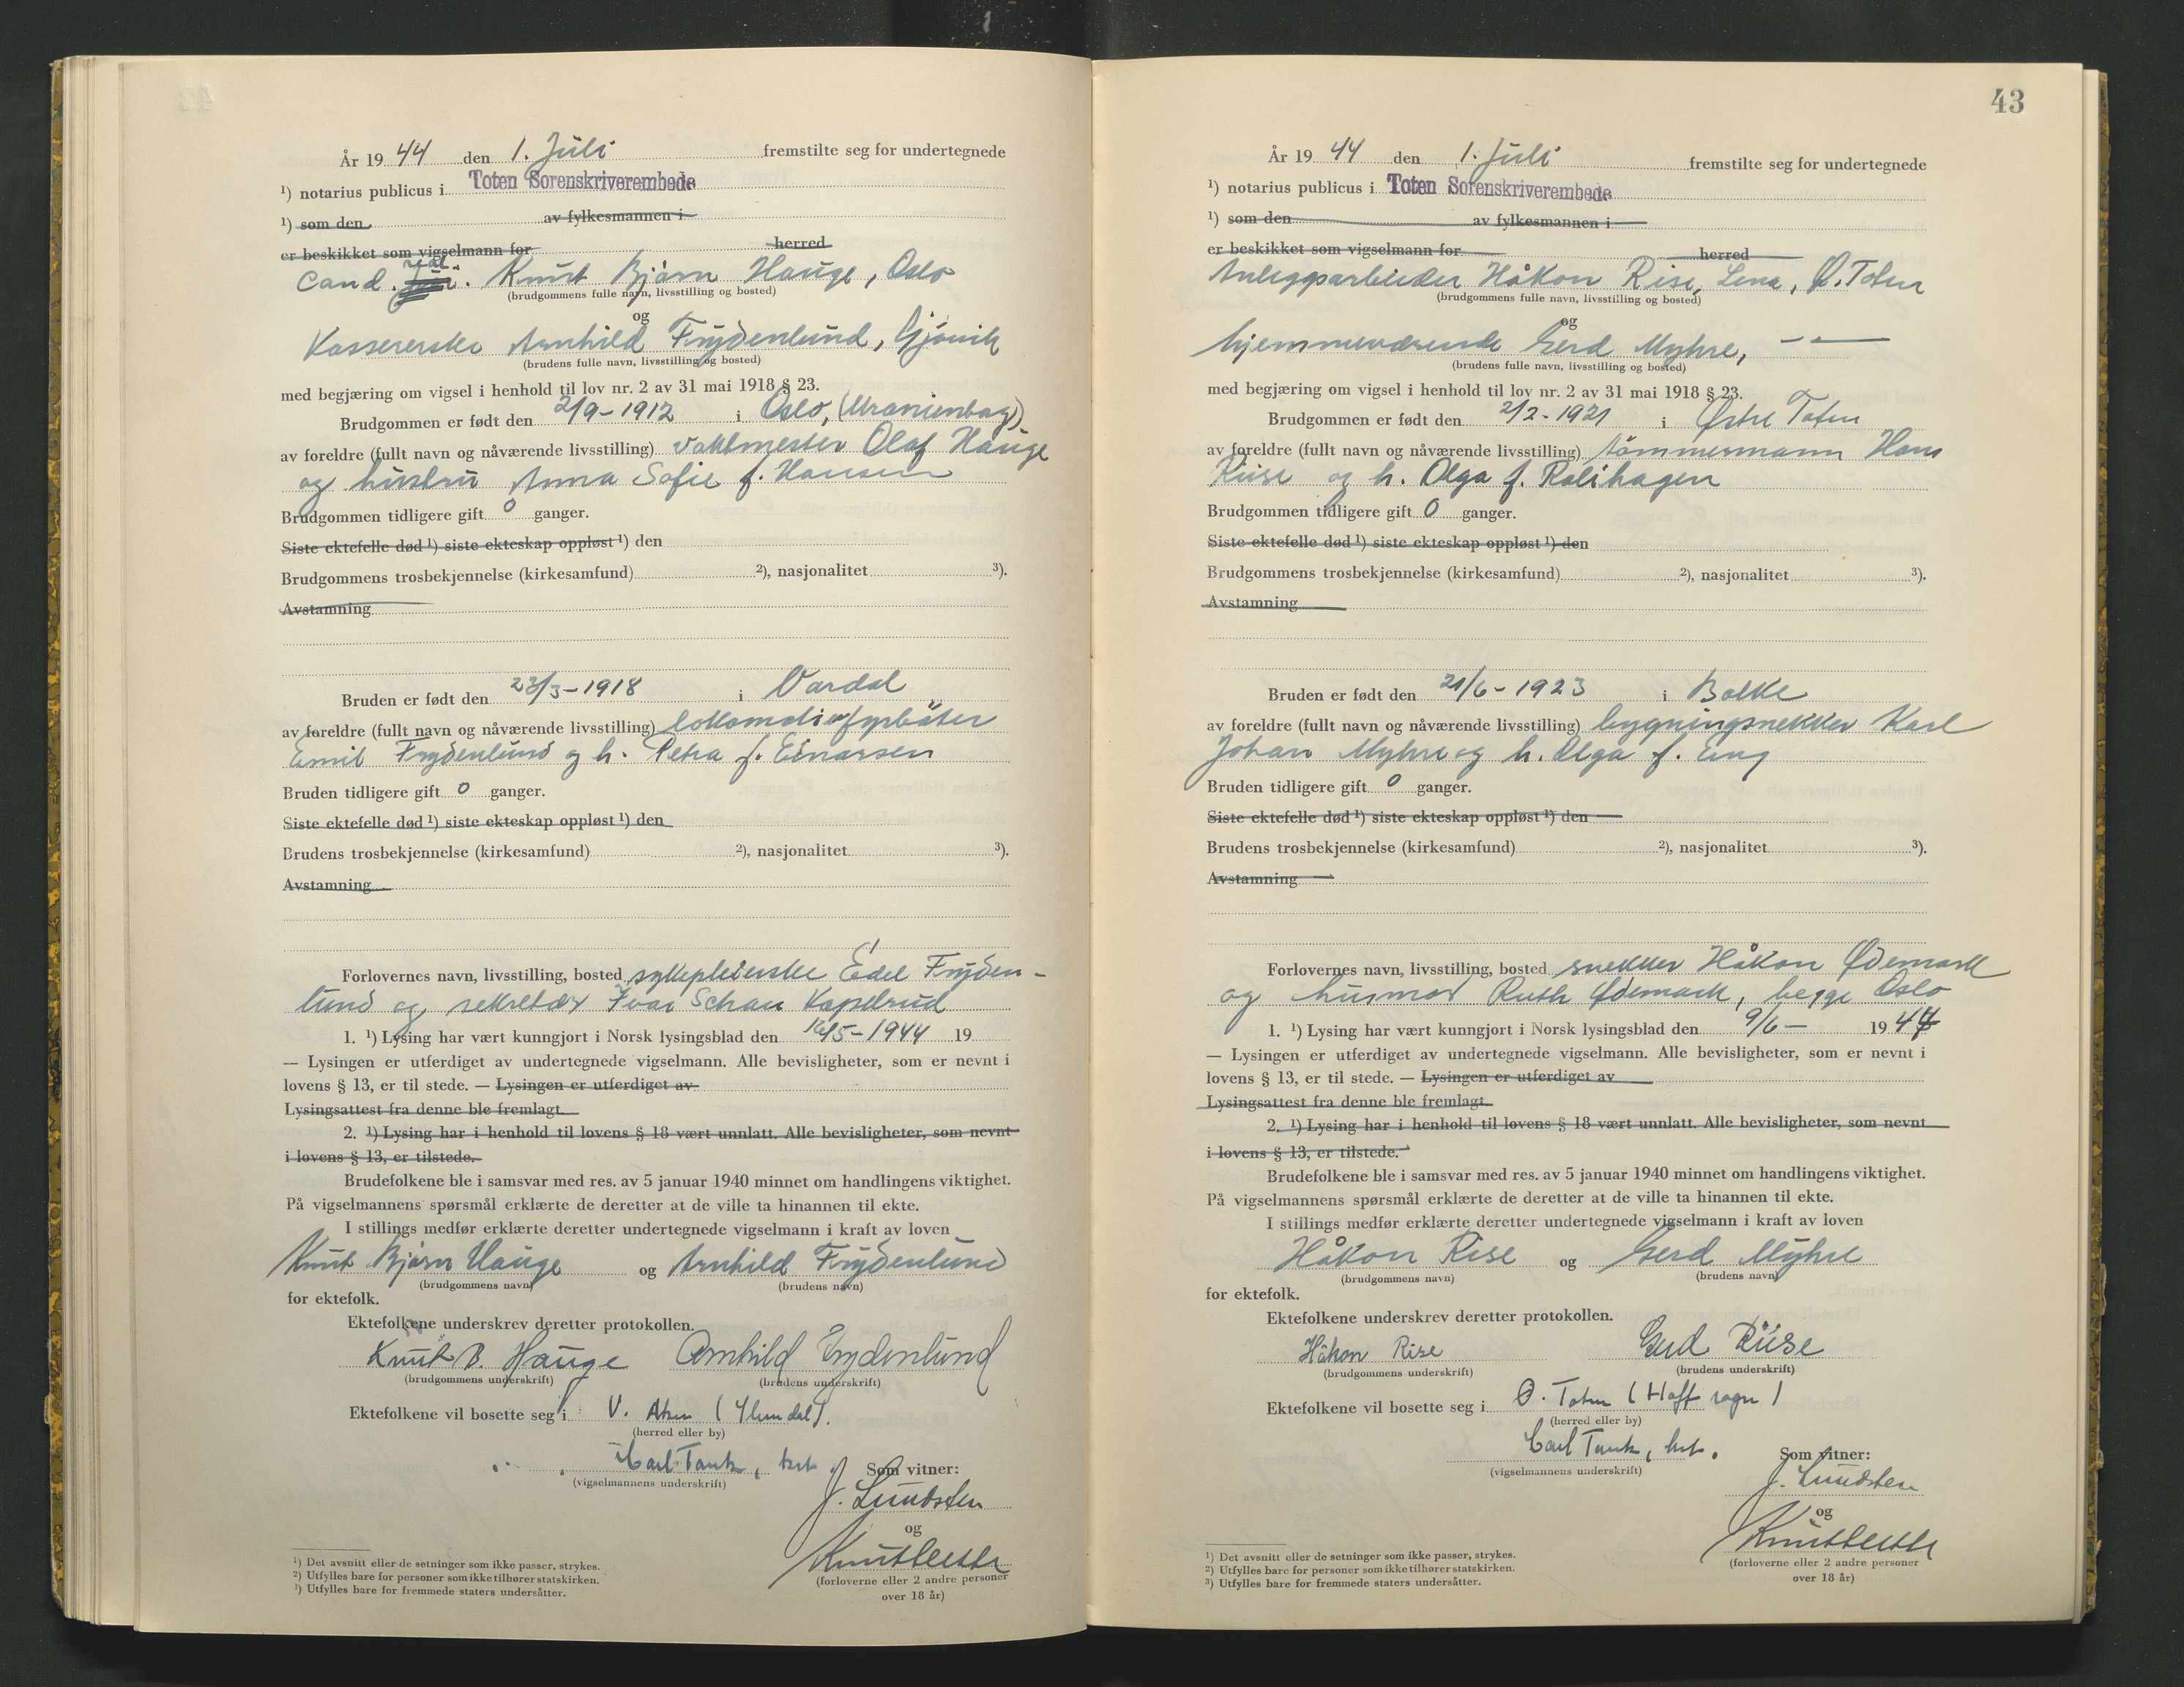 År 19 44 den 1. Juli fremstilte seg for undertegnede
¹) notarius publicus i Toten Sorenskriverembede
¹) som den av fylkesmannen i
er beskikket som vigselmann for herred
cand. real. Knut Bjørn Hauge, Oslo
(brudgommens fulle navn, livsstilling og bosted)
og
Kassererske Arnhild Frydenlund, Gjøvik
(brudens fulle navn, livsstilling og bosted)
med begjæring om vigsel i henhold til lov nr. 2 av 31 mai 1918 § 23.
Brudgommen er født den 2/9-1912 i Oslo, (Uranienborg)
av foreldre (fullt navn og nåværende livsstilling) vaktmester Olaf Hauge
og hustru Anna Sofie f. Hansen
Brudgommen tidligere gift 0 ganger.
Siste ektefelle død ¹) siste ekteskap oppløst ¹) den
Brudgommens trosbekjennelse (kirkesamfund) ²), nasjonalitet ³).
Avstamning
Bruden er født den 23/3-1918 i Vardal
av foreldre (fullt navn og nåværende livsstilling) lokomotivfyrbøter
Emil Frydenlund og h. Petra f. Einarsen
Bruden tidligere gift 0 ganger.
Siste ektefelle død ¹) siste ekteskap oppløst ¹) den
Brudens trosbekjennelse (kirkesamfund) ²), nasjonalitet ³).
Avstamning
Forlovernes navn, livsstilling, bosted sykepleierske Edel Fryden-
lund og sekretær Ivar Schau Kapselrud
1. ¹) Lysing har vært kunngjort i Norsk lysingsblad den /5-1944 19
— Lysingen er utferdiget av undertegnede vigselmann. Alle bevisligheter, som er nevnt i
lovens § 13, er til stede. — Lysingen er utferdiget av
Lysingsattest fra denne ble fremlagt
2. ¹) Lysing har i henhold til lovens § 18 vært unnlatt. Alle bevisligheter, som nevnt
i lovens § 13, er tilstede.
Brudefolkene ble i samsvar med res. av 5 januar 1940 minnet om handlingens viktighet.
På vigselmannens spørsmål erklærte de deretter at de ville ta hinannen til ekte.
I stillings medfør erklærte deretter undertegnede vigselmann i kraft av loven
Knut Bjørn Hauge og Arnhild Frydenlund
(brudgommens navn) (brudens navn)
for ektefolk.
Ektefolkene underskrev deretter protokollen.
Knut B. Hauge Arnhild Frydenlund
(brudgommens underskrift) (brudens underskrift)
Ektefolkene vil bosette seg i V. Aker
(herred eller by)
Carl Tank,
(vigselmannens underskrift)
Som vitner:
J. Lundsten
og
(forloverne eller 2 andre personer
over 18 år)
¹) Det avsnitt eller de setninger som ikke passer, strykes.
²) Utfylles bare for personer som ikke tilhører statskirken.
³) Utfylles bare for fremmede staters undersåtter.
43
År 19 44 den 1. Juli fremstilte seg for undertegnede
¹) notarius publicus i Toten Sorenskriverembede
¹) som den av fylkesmannen i
er beskikket som vigselmann for herred
Anleggsarbeider Håkon Rise, Lena, Ø. Toten
(brudgommens fulle navn, livsstilling og bosted)
og
hjemmeværende Gerd Myhre, — " —
(brudens fulle navn, livsstilling og bosted)
med begjæring om vigsel i henhold til lov nr. 2 av 31 mai 1918 § 23.
Brudgommen er født den 2/2-1921 i Østre Toten
av foreldre (fullt navn og nåværende livsstilling) tømmermann Hans
Riise og h. Olga f. Rølihagen
Brudgommen tidligere gift 0 ganger.
Siste ektefelle død ¹) siste ekteskap oppløst ¹) den
Brudgommens trosbekjennelse (kirkesamfund) ²), nasjonalitet ³).
Avstamning
Bruden er født den 21/6-1923 i Balke
av foreldre (fullt navn og nåværende livsstilling) bygningsnekker Karl
Johan Myhre og h. Olga f. Eng
Bruden tidligere gift 0 ganger.
Siste ektefelle død ¹) siste ekteskap oppløst ¹) den
Brudens trosbekjennelse (kirkesamfund) ²), nasjonalitet ³).
Avstamning
Forlovernes navn, livsstilling, bosted snekker Håkon Ødemark
og husmor Ruth Ødemark, begge Oslo
1. ¹) Lysing har vært kunngjort i Norsk lysingsblad den 9/6 — 1944
— Lysingen er utferdiget av undertegnede vigselmann. Alle bevisligheter, som er nevnt i
lovens § 13, er til stede. — Lysingen er utferdiget av
Lysingsattest fra denne ble fremlagt
2. ¹) Lysing har i henhold til lovens § 18 vært unnlatt. Alle bevisligheter, som nevnt
i lovens § 13, er tilstede.
Brudefolkene ble i samsvar med res. av 5 januar 1940 minnet om handlingens viktighet.
På vigselmannens spørsmål erklærte de deretter at de ville ta hinannen til ekte.
I stillings medfør erklærte deretter undertegnede vigselmann i kraft av loven
Håkon Rise og Gerd Myhre
(brudgommens navn) (brudens navn)
for ektefolk.
Ektefolkene underskrev deretter protokollen.
Håkon Rise Gerd Riise
(brudgommens underskrift) (brudens underskrift)
Ektefolkene vil bosette seg i Ø. Toten (Hoff sogn)
(herred eller by)
Carl Tank,
(vigselmannens underskrift)
Som vitner:
J. Lundsten
og
(forloverne eller 2 andre personer
over 18 år)
¹) Det avsnitt eller de setninger som ikke passer, strykes.
²) Utfylles bare for personer som ikke tilhører statskirken.
³) Utfylles bare for fremmede staters undersåtter.